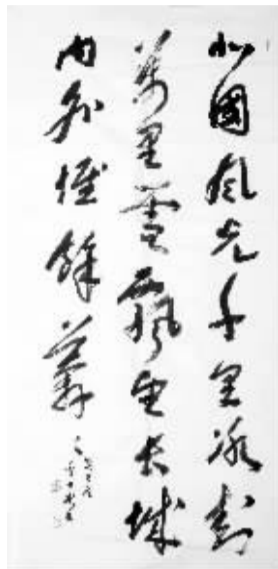 北國風光千里冰封
萬里雪飄望長城
内外惟餘莽莽